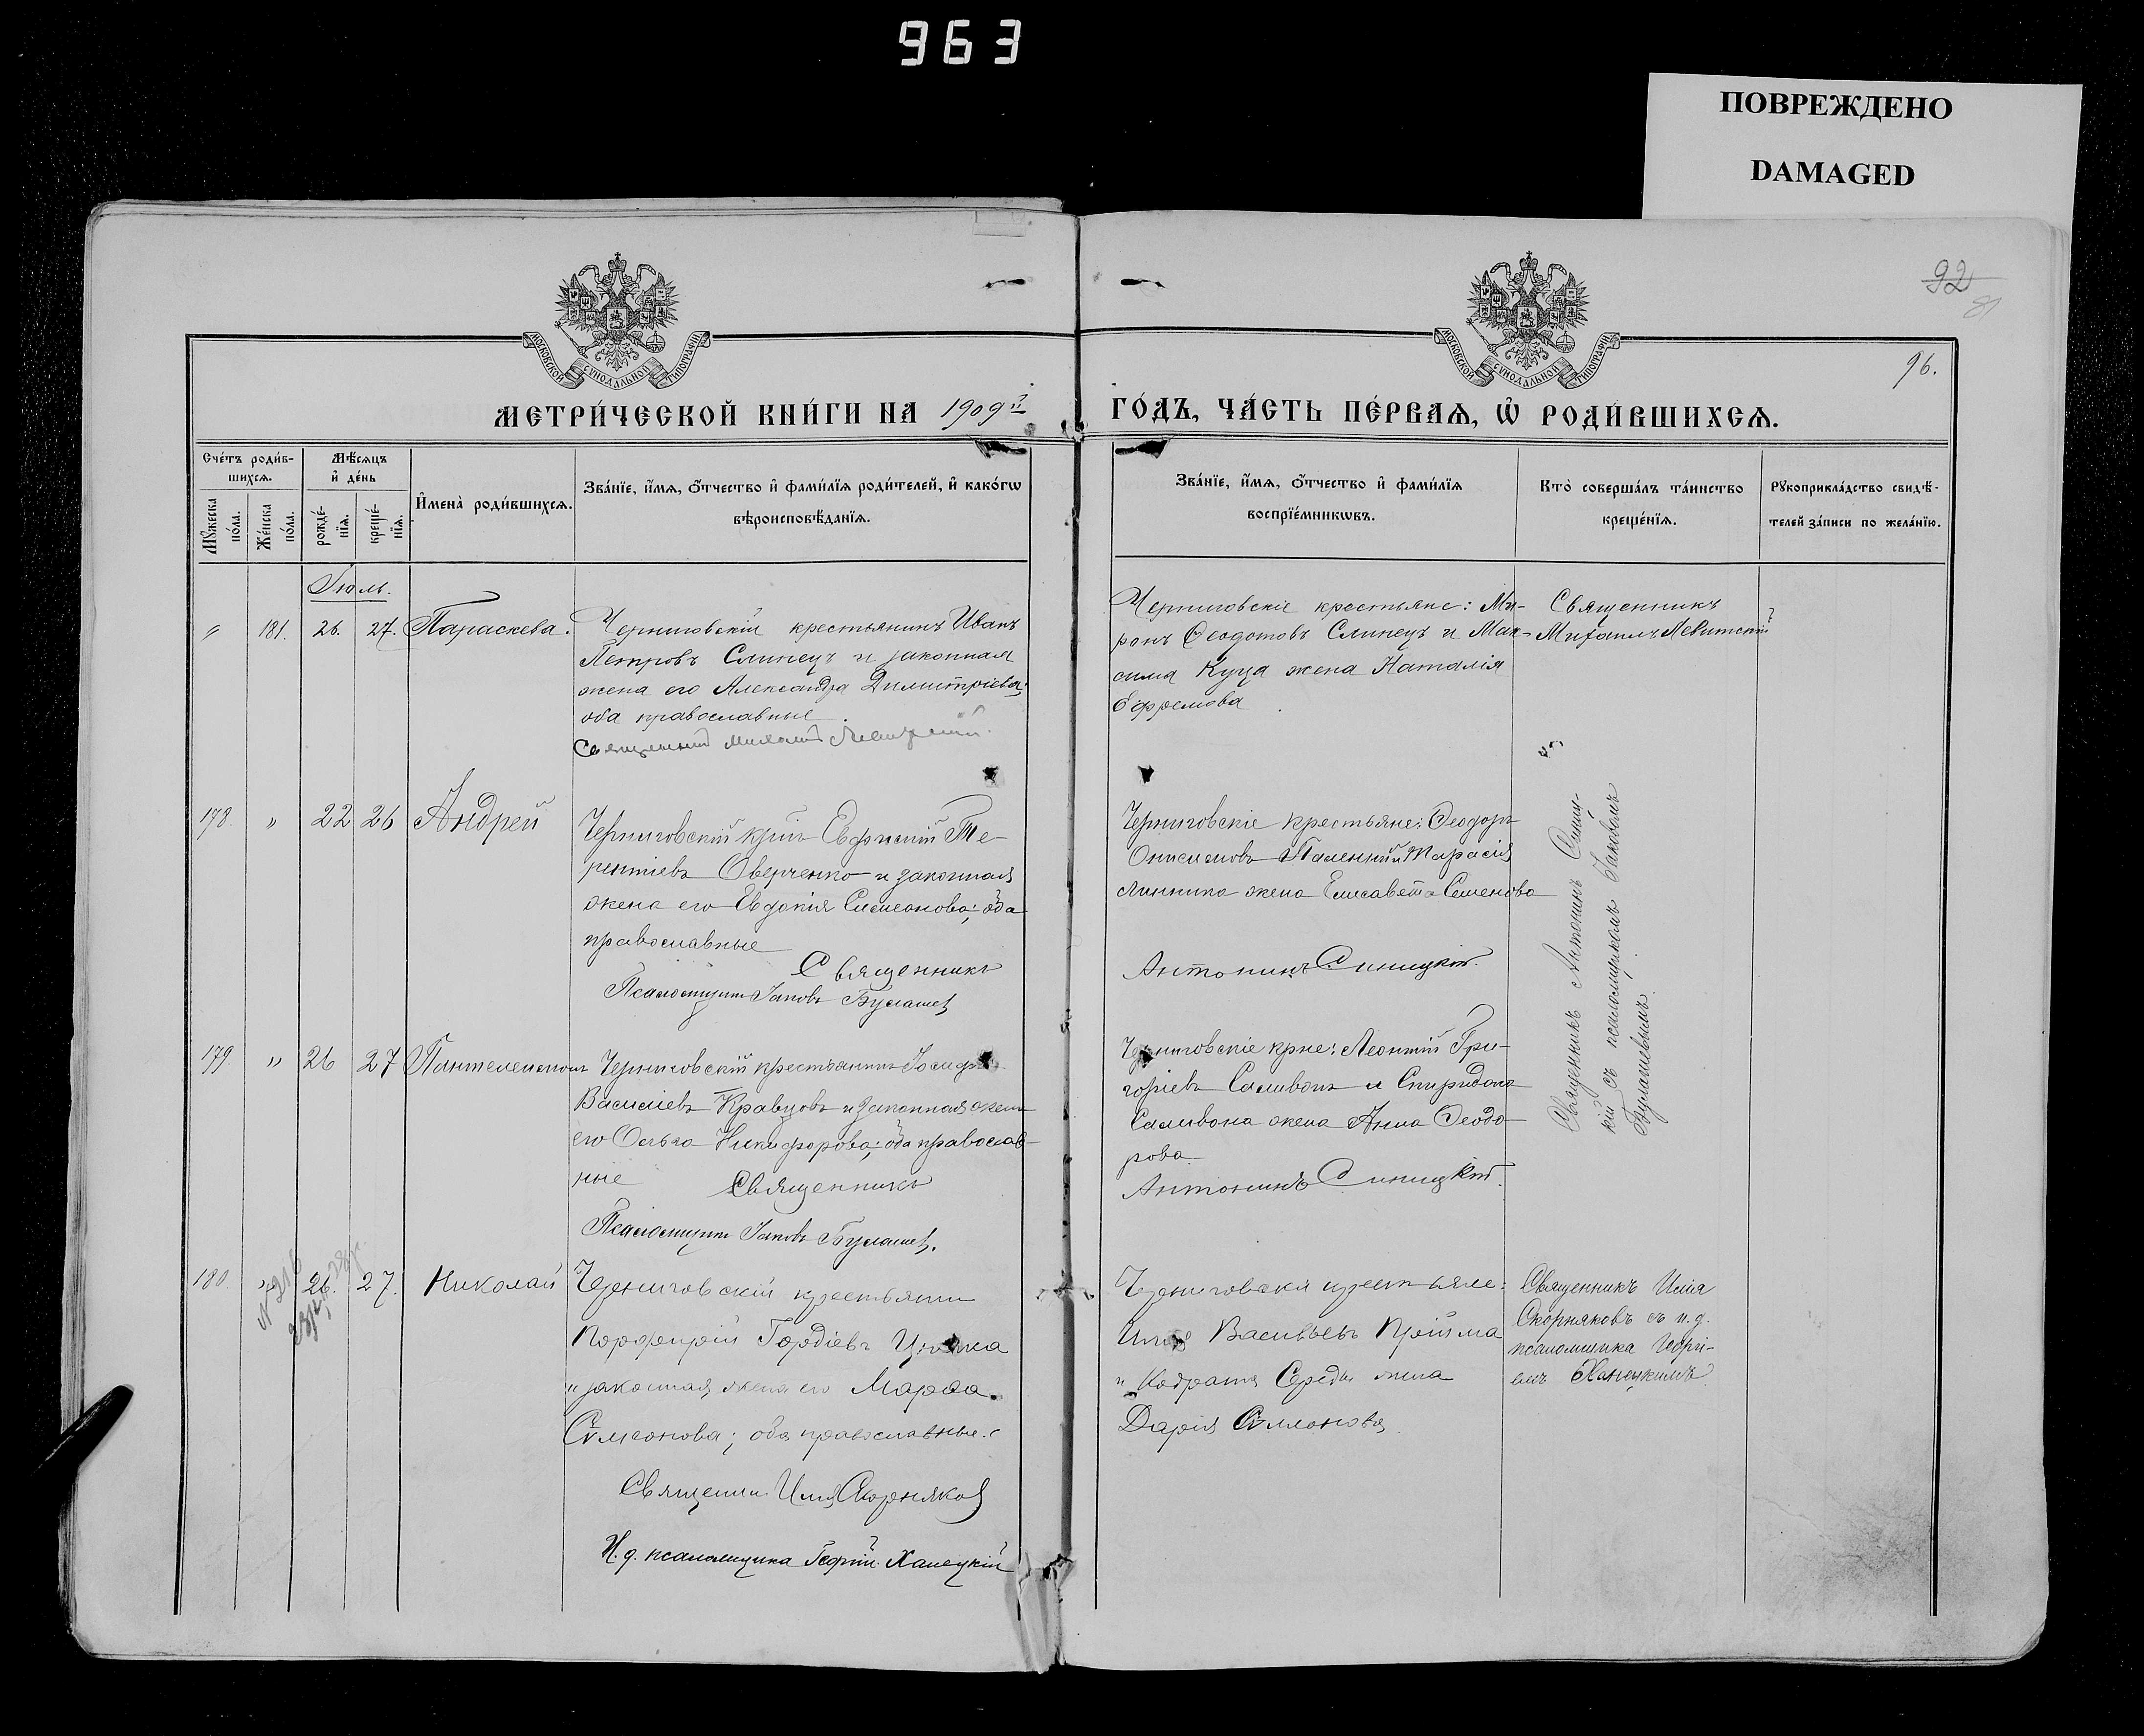 963
ПОВРЕЖДЕНО
DAMAGED
92
96.
МОСКОВСКОЙ СѴНОДАЛЬНОЙ ТИПОГРАФІИ
МОСКОВСКОЙ СѴНОДАЛЬНОЙ ТИПОГРАФІИ
МЕТРИ́ЧЕСКОЙ КНИ́ГИ НА 1909й ГО́ДЪ, ЧА́СТЬ ПЕ́РВАѦ, Ѡ҆ РОДИ́ВШИХСѦ.
Сче́тъ роди́в-
шихсѧ.
Мꙋ́жеска
по́ла.
Же́нска
по́ла.
Мѣ́сѧцъ
и҆ де́нь
рожде́-
нїѧ.
креще́-
нїѧ.
И҆мена̀ роди́вшихсѧ.
Зва́нїе, и҆́мѧ, ѻ҆́тчество и҆ фами́лїѧ роди́телей, и҆ како́гѡ
вѣроисповѣ́данїѧ.
Зва́нїе, и҆́мѧ, ѻ҆́тчество и҆ фами́лїѧ
воспрїе́мникѡвъ.
Кто̀ соверша́лъ та́инство
креще́нїѧ.
Рꙋкоприкла́дство свидѣ́-
телей за́писи по жела́нїю.
Іюль.
" 181. 26. 27. Параскева.
Черниговскій крестьянинъ Иванъ
Петровъ Слипецъ и законная
жена его Александра Димитріева;
оба православные.
Священникъ Михаилъ Левитскій.
Черниговскіе крестьяне: Ми-
ронъ Ѳеодотовъ Слипецъ и Мак-
сима Куца жена Наталія
Ефремова
Священникъ
Михаилъ Левитскій
178. " 22 26 Андрей
Черниговскій крнъ Евфимій Те-
рентіевъ Оверченко и законная
жена его Евдокія Симеонова; оба
православные
Священникъ
Псаломщикъ Іаковъ Булашев
Черниговскіе крестьяне: Ѳеодоръ
Онисимовъ и Тарасія
Линника жена Елисавета Семенова
Антонинъ Синицкій.
Священникъ Антонинъ Синиц-
кій съ псаломщикомъ Іаковомъ
Булашевымъ.
179. " 26 27 Пантелеимонъ
Черниговскій крестьянинъ Іосифъ
Василіевъ Кравцовъ и законная жена
его Ольга Никифорова; оба православ-
ные
Священникъ
Псаломщикъ Іаковъ Булашев.
Черниговскіе крне: Леонтій Гри-
горіевъ Саливонъ и Спиридона
Саливона жена Анна Ѳеодо-
рова
Антонинъ Синицкій.
180. " 26. 27. Николай
Черниговскій крестьянинъ
Порфирій Гордіевъ
и законная жена его Марѳа
Сѵмеонова; оба православные.
Священникъ Илія Скорняков
И. д. псаломщика Георгій Ханецкій
Черниговскіе крестьяне:
Илія Васильевъ Прійма
и Кодрата Середы жена
Дарія Сѵмеонова
Священникъ Илія
Скорняковъ съ и. д.
псаломщика Георгі-
емъ Ханецкимъ